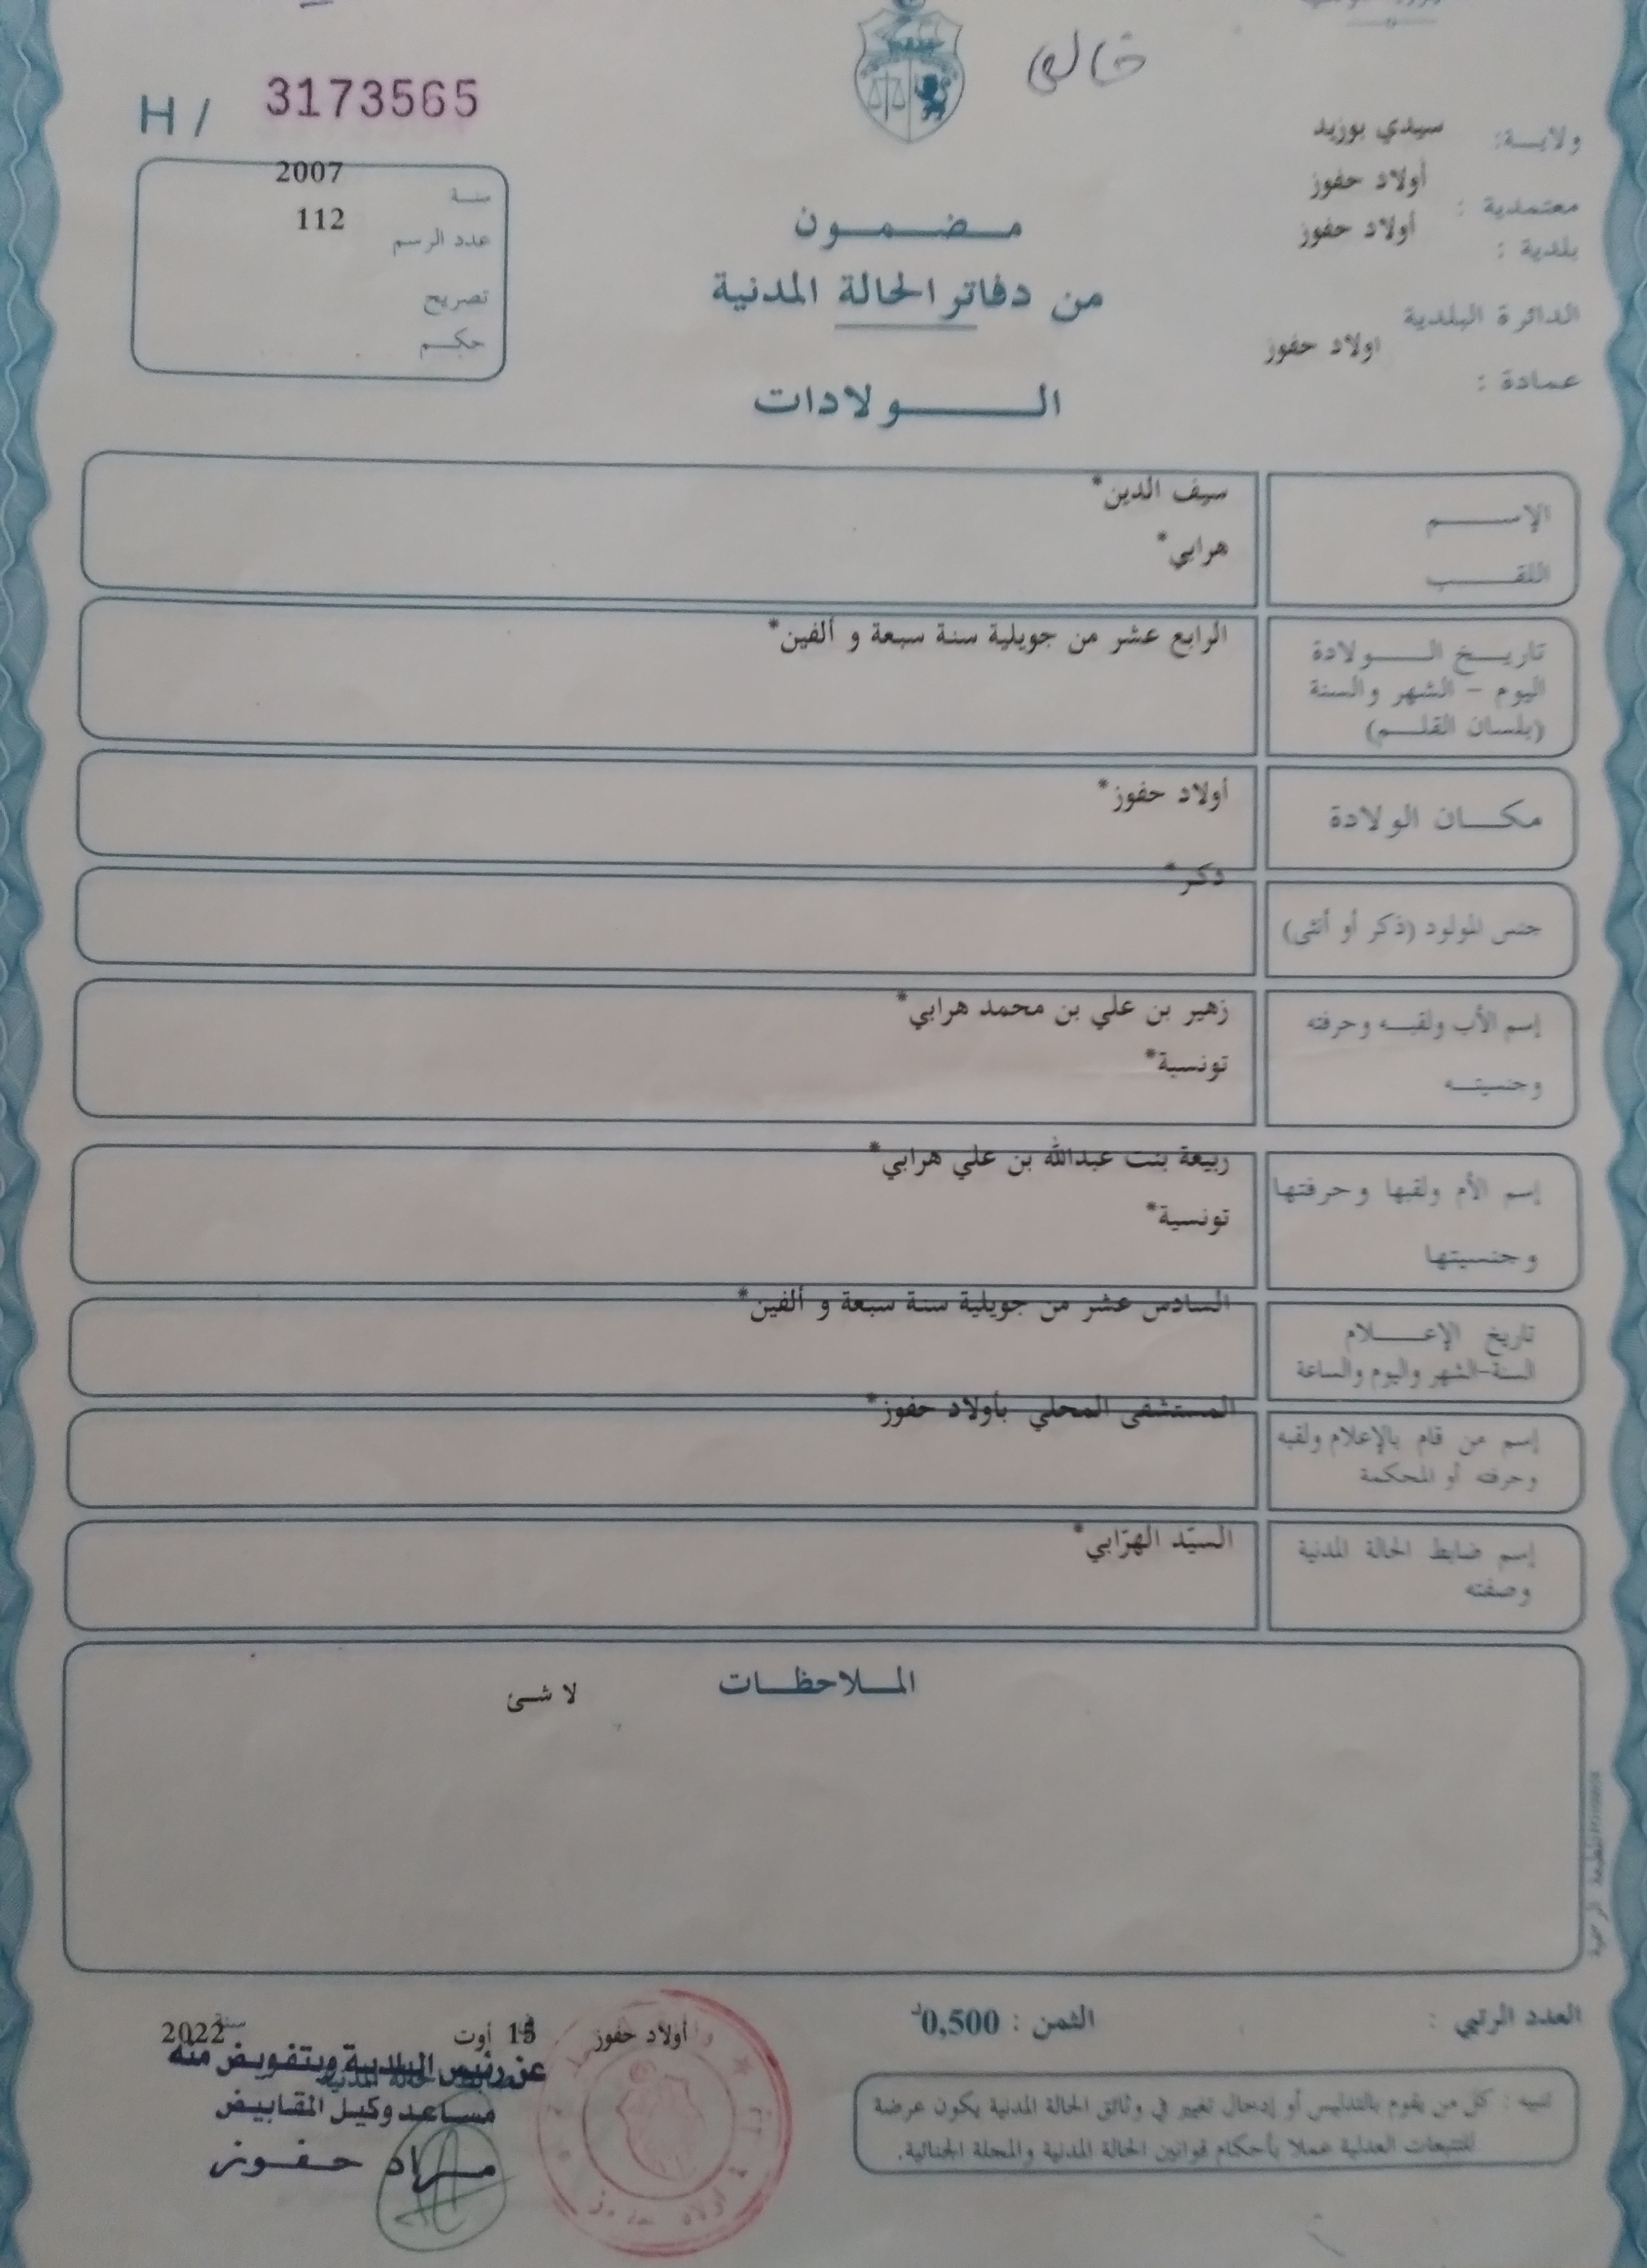 خالص
H / 3173565
ولايـــة: سيدي بوزيد
معتمدية : أولاد حفوز
بلدية : أولاد حفوز
الدائرة البلدية
اولاد حفوز
عمادة :
سنـة 2007
عدد الرسم 112
تصريح
حكـم
مـــضـــمـــون
من دفاتر الحالة المدنية
الـــــولادات
الإســـــم سيف الدين*
اللقـــــب هرابي*
تاريـــخ الـــــولادة الرابع عشر من جويلية سنة سبعة و ألفين*
اليوم - الشهر والسنة
(بلسان القلـــم)
مكـــان الولادة أولاد حفوز*
جنس المولود (ذكر أو أنثى) ذكر*
إسم الأب ولقبـــه وحرفته زهير بن علي بن محمد هرابي*
وجنسيتـــه تونسية*
إسم الأم ولقبها وحرفتها ربيعة بنت عبدالله بن علي هرابي*
وجنسيتها تونسية*
تاريخ الإعـــــلام السادس عشر من جويلية سنة سبعة و ألفين*
السنة-الشهر واليوم والساعة
إسم من قام بالإعلام ولقبه المستشفى المحلي بأولاد حفوز*
وحرفته أو المحكمة
إسم ضابط الحالة المدنية السيّد الهرّابي*
وصفته
المـــلاحظـــات
لا شئ
العدد الرتبي :
الثمن : 0,500د
أولاد حفوز في 15 أوت سنة 2022
عن رئيس البلدية وبتفويض منه
مساعد وكيل المقابيض
مراد حفوز
تنبيه : كل من يقوم بالتدليس أو إدخال تغيير في وثائق الحالة المدنية يكون عرضة
للتتبعات العدلية عملا بأحكام قوانين الحالة المدنية والمجلة الجنائية.